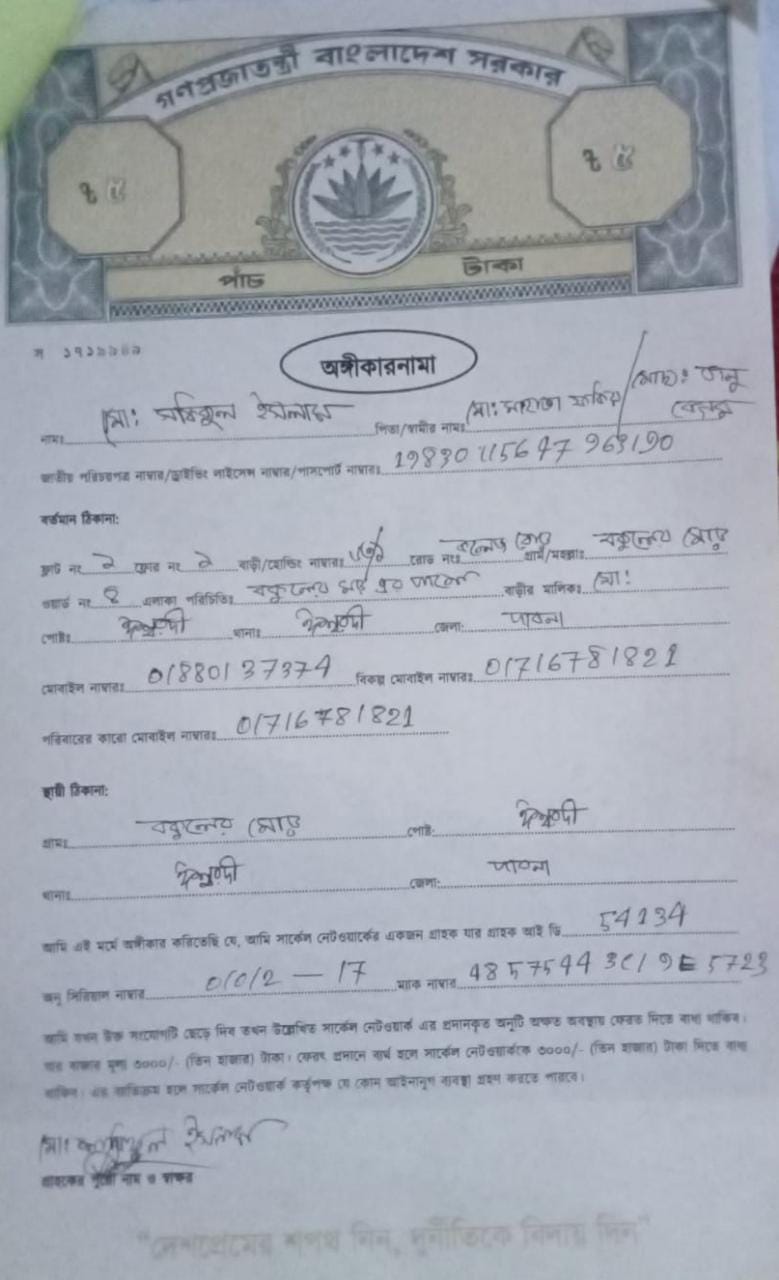 গণপ্রজাতন্ত্রী বাংলাদেশ সরকার
৳ ৫ ৳ ৫
পাঁচ টাকা
অঙ্গীকারনামা
নামঃ মো: রফিকুল ইসলাম পিতা/স্বামীর নামঃ মো:
জাতীয় পরিচয়পত্র নাম্বার/ড্রাইভিং লাইসেন্স নাম্বার/পাসপোর্ট নাম্বারঃ
বর্তমান ঠিকানা:
ফ্লাট নং ২ ফ্লোর নং ২ বাড়ী/হোল্ডিং নাম্বারঃ রোড নংঃ কলেজ রোড গ্রাম/মহল্লাঃ বকুলের মোড়
ওয়ার্ড নং ৪ এলাকা পরিচিতিঃ বকুলের মোড় এর পাশে বাড়ীর মালিকঃ মো:
পোষ্টঃ ঈশ্বরদী থানাঃ ঈশ্বরদী জেলা: পাবনা
মোবাইল নাম্বারঃ 01880137374 বিকল্প মোবাইল নাম্বারঃ 01716781821
পরিবারের কারো মোবাইল নাম্বারঃ 01716781821
স্থায়ী ঠিকানা:
গ্রামঃ বকুলের মোড় পোষ্ট: ঈশ্বরদী
থানাঃ ঈশ্বরদী জেলা: পাবনা
আমি এই মর্মে অঙ্গীকার করিতেছি যে, আমি সার্কেল নেটওয়ার্কের একজন গ্রাহক যার গ্রাহক আই ডি 54134
অনু সিরিয়াল নাম্বার 0/0/2 - 17 ম্যাক নাম্বার
আমি যখন উক্ত সংযোগটি ছেড়ে দিব তখন উল্লেখিত সার্কেল নেটওয়ার্ক এর প্রদানকৃত অনুটি অক্ষত অবস্থায় ফেরত দিতে বাধ্য থাকিব।
যার বাজার মূল্য ৩০০০/- (তিন হাজার) টাকা। ফেরৎ প্রদানে ব্যর্থ হলে সার্কেল নেটওয়ার্ককে ৩০০০/- (তিন হাজার) টাকা দিতে বাধ্য
থাকিব। এর ব্যতিক্রম হলে সার্কেল নেটওয়ার্ক কর্তৃপক্ষ যে কোন আইনানুগ ব্যবস্থা গ্রহণ করতে পারবে।
মো: ইসলাম
গ্রাহকের পুরো নাম ও স্বাক্ষর
"দেশপ্রেমের শপথ নিন, দুর্নীতিকে বিদায় দিন"